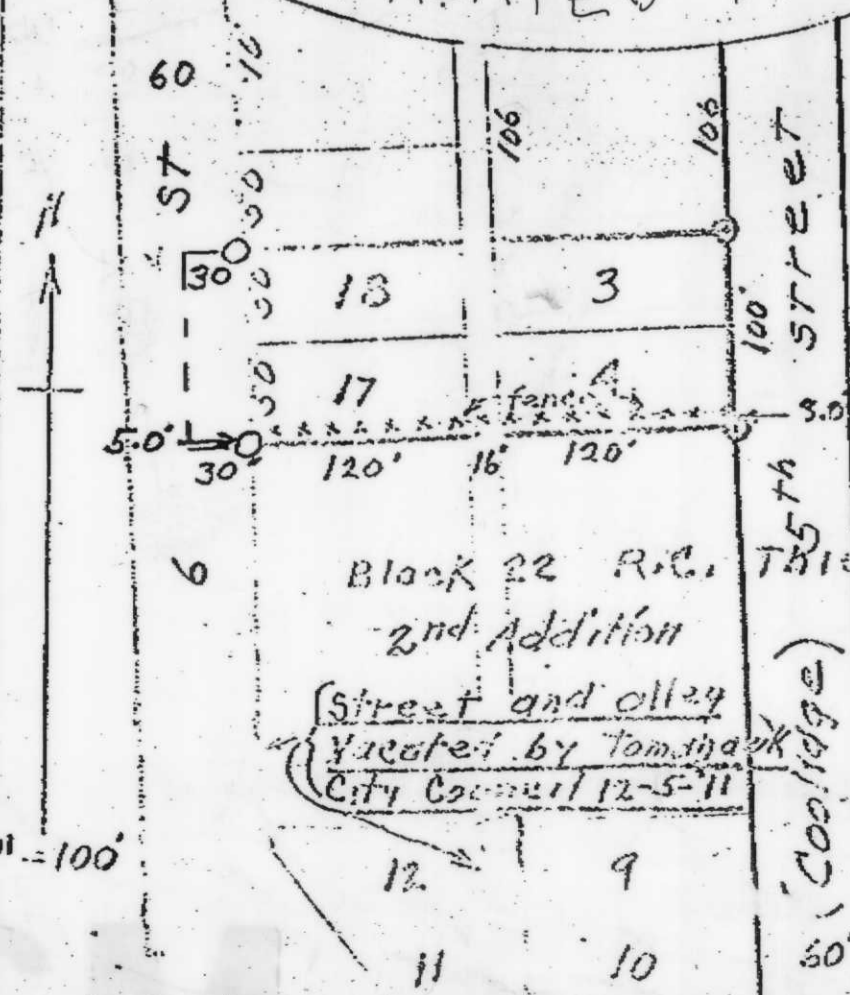 60
10
ST
106
106
STreeT
50
N
30
50
18
3
100'
50
17
4
fence
5.0'
3.0'
30'
120'
16'
120'
5th
6
Block 22 R.C.
2nd Addition
Street and alley
Vacated by Tomahawk
City Council 12-5-'11
(Coolidge)
=100'
12
9
11
10
60'